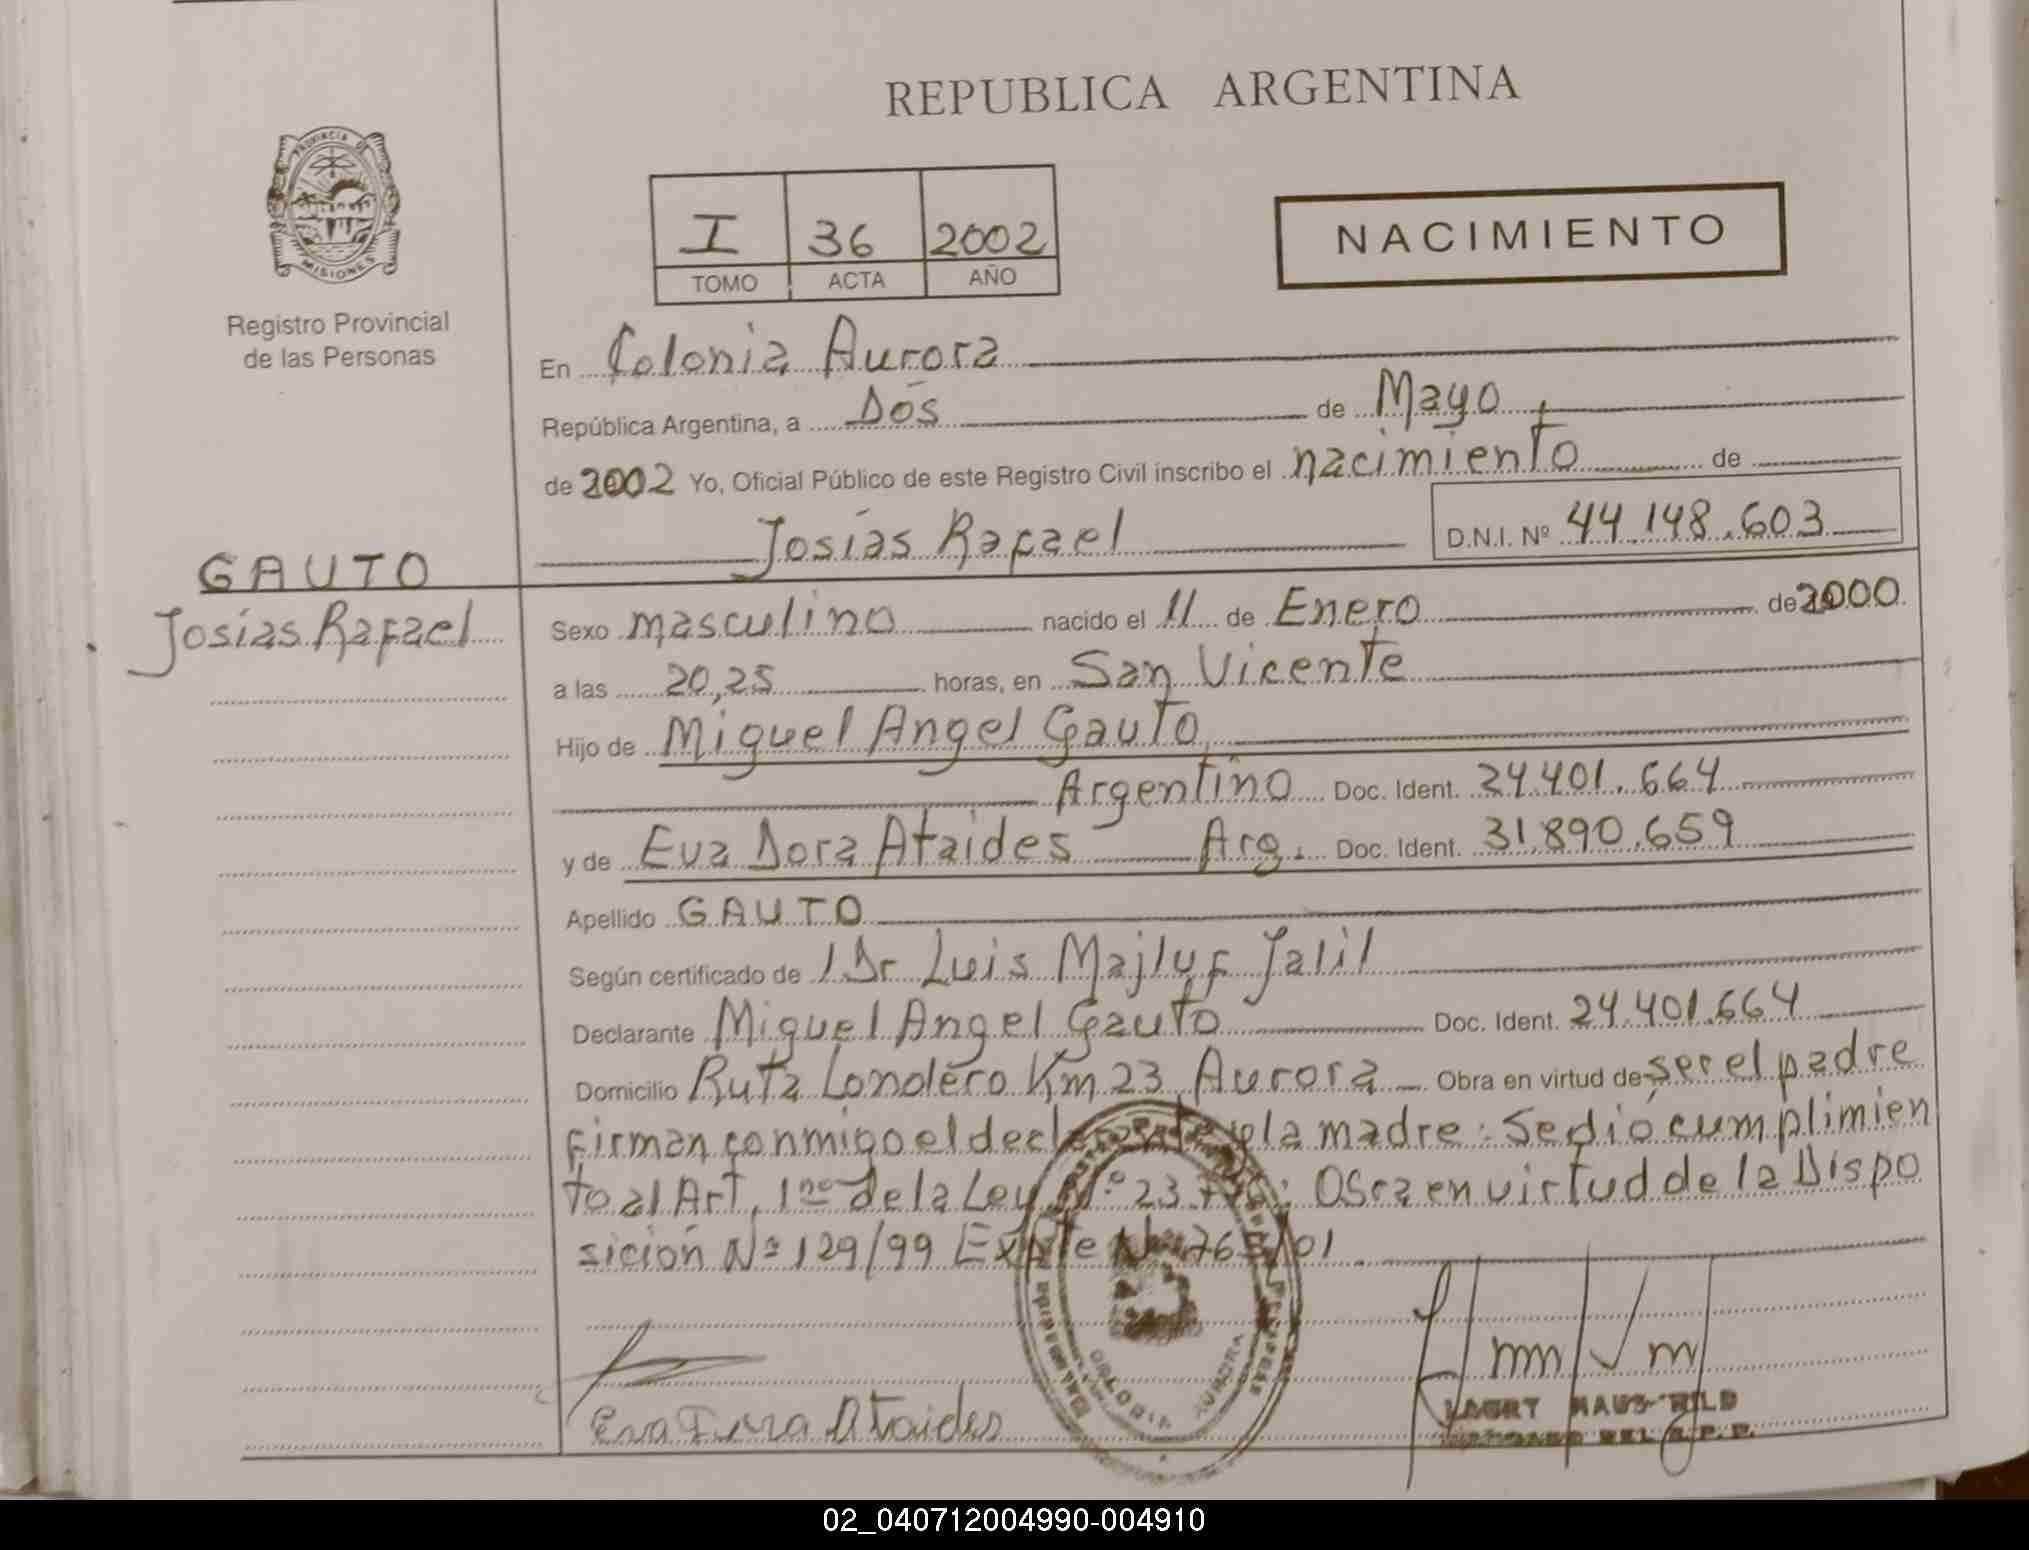 REPUBLICA ARGENTINA
PROVINCIA DE
MISIONES
Registro Provincial
de las Personas
I 36 2002
TOMO ACTA AÑO
NACIMIENTO
En Colonia Aurora
República Argentina, a Dós de Mayo
de 2002 Yo, Oficial Público de este Registro Civil inscribo el nacimiento de
Josías Rafael D.N.I. Nº 44.148.603
GAUTO
Josías Rafael
Sexo masculino nacido el 11 de Enero de 2000
a las 20,25 horas, en San Vicente
Hijo de Miguel Angel Gauto
Argentino Doc. Ident. 24.401.664
y de Eva Dora Ataides Arg. Doc. Ident. 31.890.659
Apellido GAUTO
Según certificado de 1 Dr Luis Majluf Jalil
Declarante Miguel Angel Gauto Doc. Ident. 24.401.664
Domicilio Ruta Londero Km 23 Aurora Obra en virtud de ser el padre
firman conmigo el declarante y la madre: Se dió cumplimien
to al Art. 1ro de la Ley Nº 23. : Obra en virtud de la Dispo
sición Nº 129/99 Expte Nº /01
Eva Dora Ataides
COLONIA AURORA
02_040712004990-004910